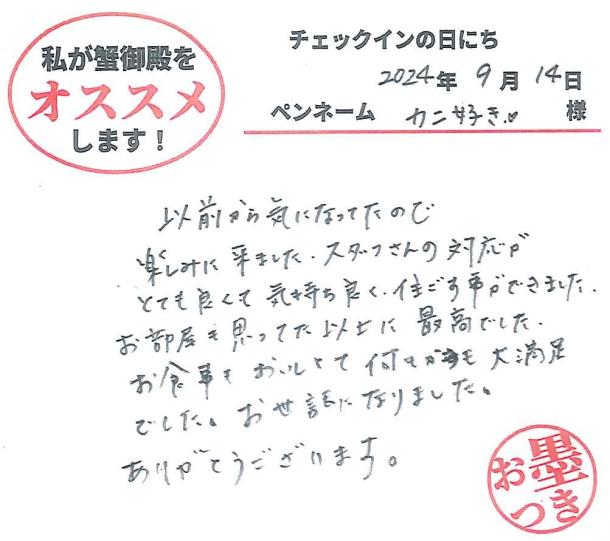 私が蟹御殿を
オススメ
します！
チェックインの日にち
2024年 9月 14日
ペンネーム カニ好き♥ 様
以前から気になってたので
楽しみに来ました。スタッフさんの対応が
とても良くて気持ち良く、過ごす事ができました。
お部屋も思ってた以上に最高でした。
お食事もおいしくて何もかも大満足
でした。お世話になりました。
ありがとうございます。
お墨
つき